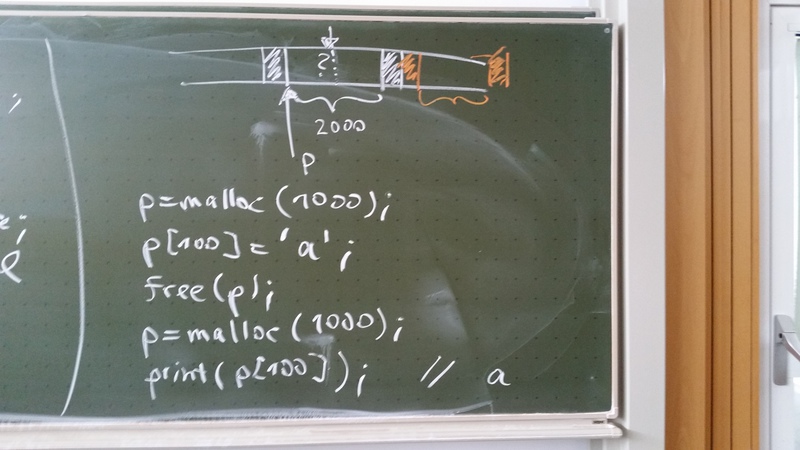 ?
2000
p
p=malloc(1000);
p[100]='a';
free(p);
p=malloc(1000);
print(p[100]); // a